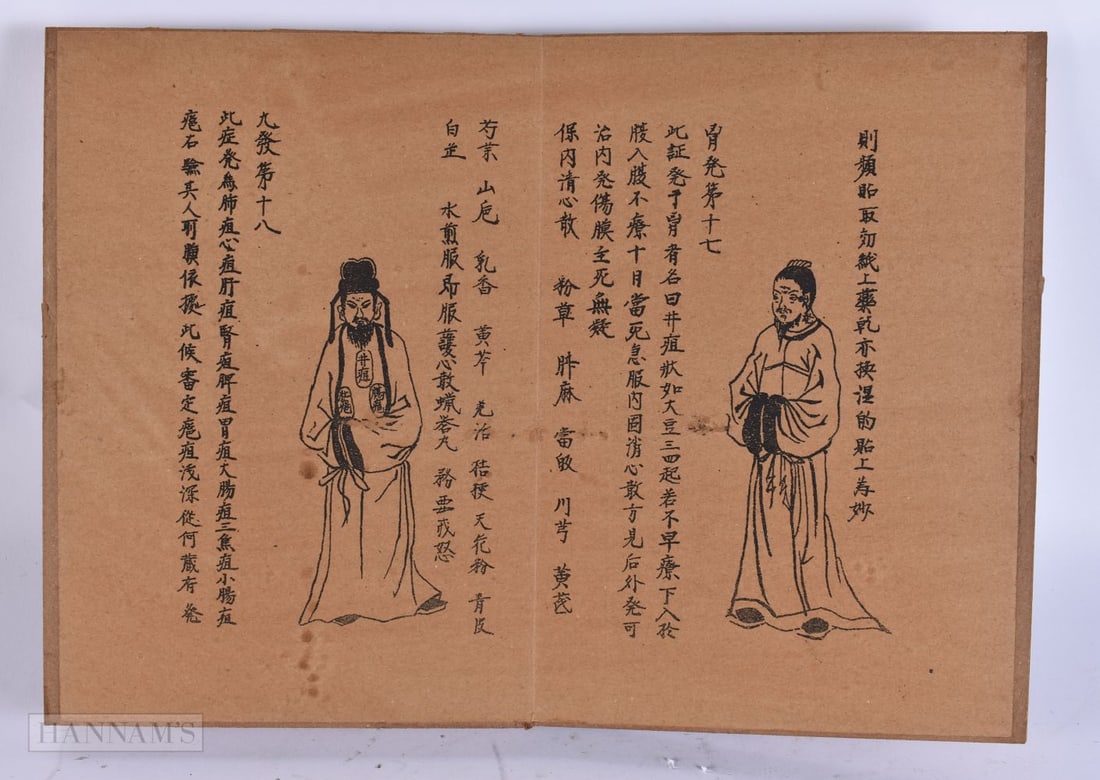 則頻貼取勿紙上藥乾亦換湿的貼上為妙
胃発第十七
此証発于胃者名曰井疽狀如大豆三四起若不早療下入於
腹入腹不療十日當死急服内固清心散方見后外発可
治内発傷膜主死無疑
保内清心散 粉草 升麻 當 川芎 黄芪
芍薬 山梔 乳香 黄芩 羌活 桔梗 天花粉 青皮
白芷 水煎服即服護心散蝋茶丸 務要戒怒
井疽
腸癰
九發第十八
此症発為肺疽心疽肝疽腎疽脾疽胃疽大腸疽三焦疽小腸疽
癰石 驗其人 依據此候審定癰疽浅深從何蔵府発
HANNAM'S